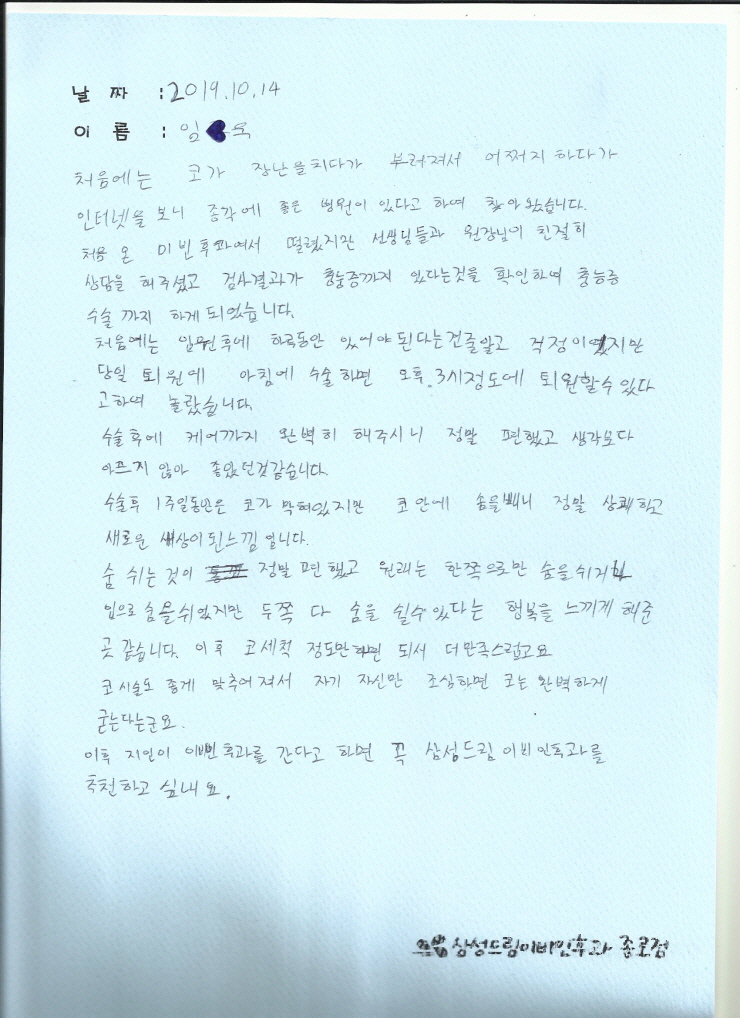 날 짜 : 2019.10.14
이 름 : 임 욱
처음에는 코가 장난을치다가 부러져서 어쩌지 하다가
인터넷을 보니 종각에 좋은 병원이 있다고 하여 찾아 왔습니다.
처음 온 이빈후과여서 떨렸지만 선생님들과 원장님이 친절히
상담을 해주셨고 검사결과가 충농증까지 있다는것을 확인하여 충농증
수술 까지 하게 되었습니다.
처음에는 입원후에 하루동안 있어야 된다는건줄알고 걱정이였지만
당일 퇴원에 아침에 수술하면 오후.3시정도에 퇴원할수있다
고하여 놀랐습니다.
수술후에 케어까지 완벽히 해주시니 정말 편했고 생각보다
아프지 않아 좋았던것같습니다.
수술후 1주일동안은 코가 막혀있지만 코안에 솜을빼니 정말 상쾌하고
새로운 세상이된느낌 입니다.
숨 쉬는 것이 정말 편했고 원래는 한쪽으로만 숨을쉬거나
입으로 숨을쉬였지만 두쪽 다 숨을 쉴수있다는 행복을 느끼게 해준
곳 같습니다. 이후 코세척 정도만하면 되서 더만족스럽고요
코시술도 좋게 맞추어져서 자기 자신만 조심하면 코는 완벽하게
굳는다는군요.
이후 지인이 이빈후과를 간다고 하면 꼭 삼성드림이비인후과를
추천하고 싶네요.
삼성드림이비인후과 종로점